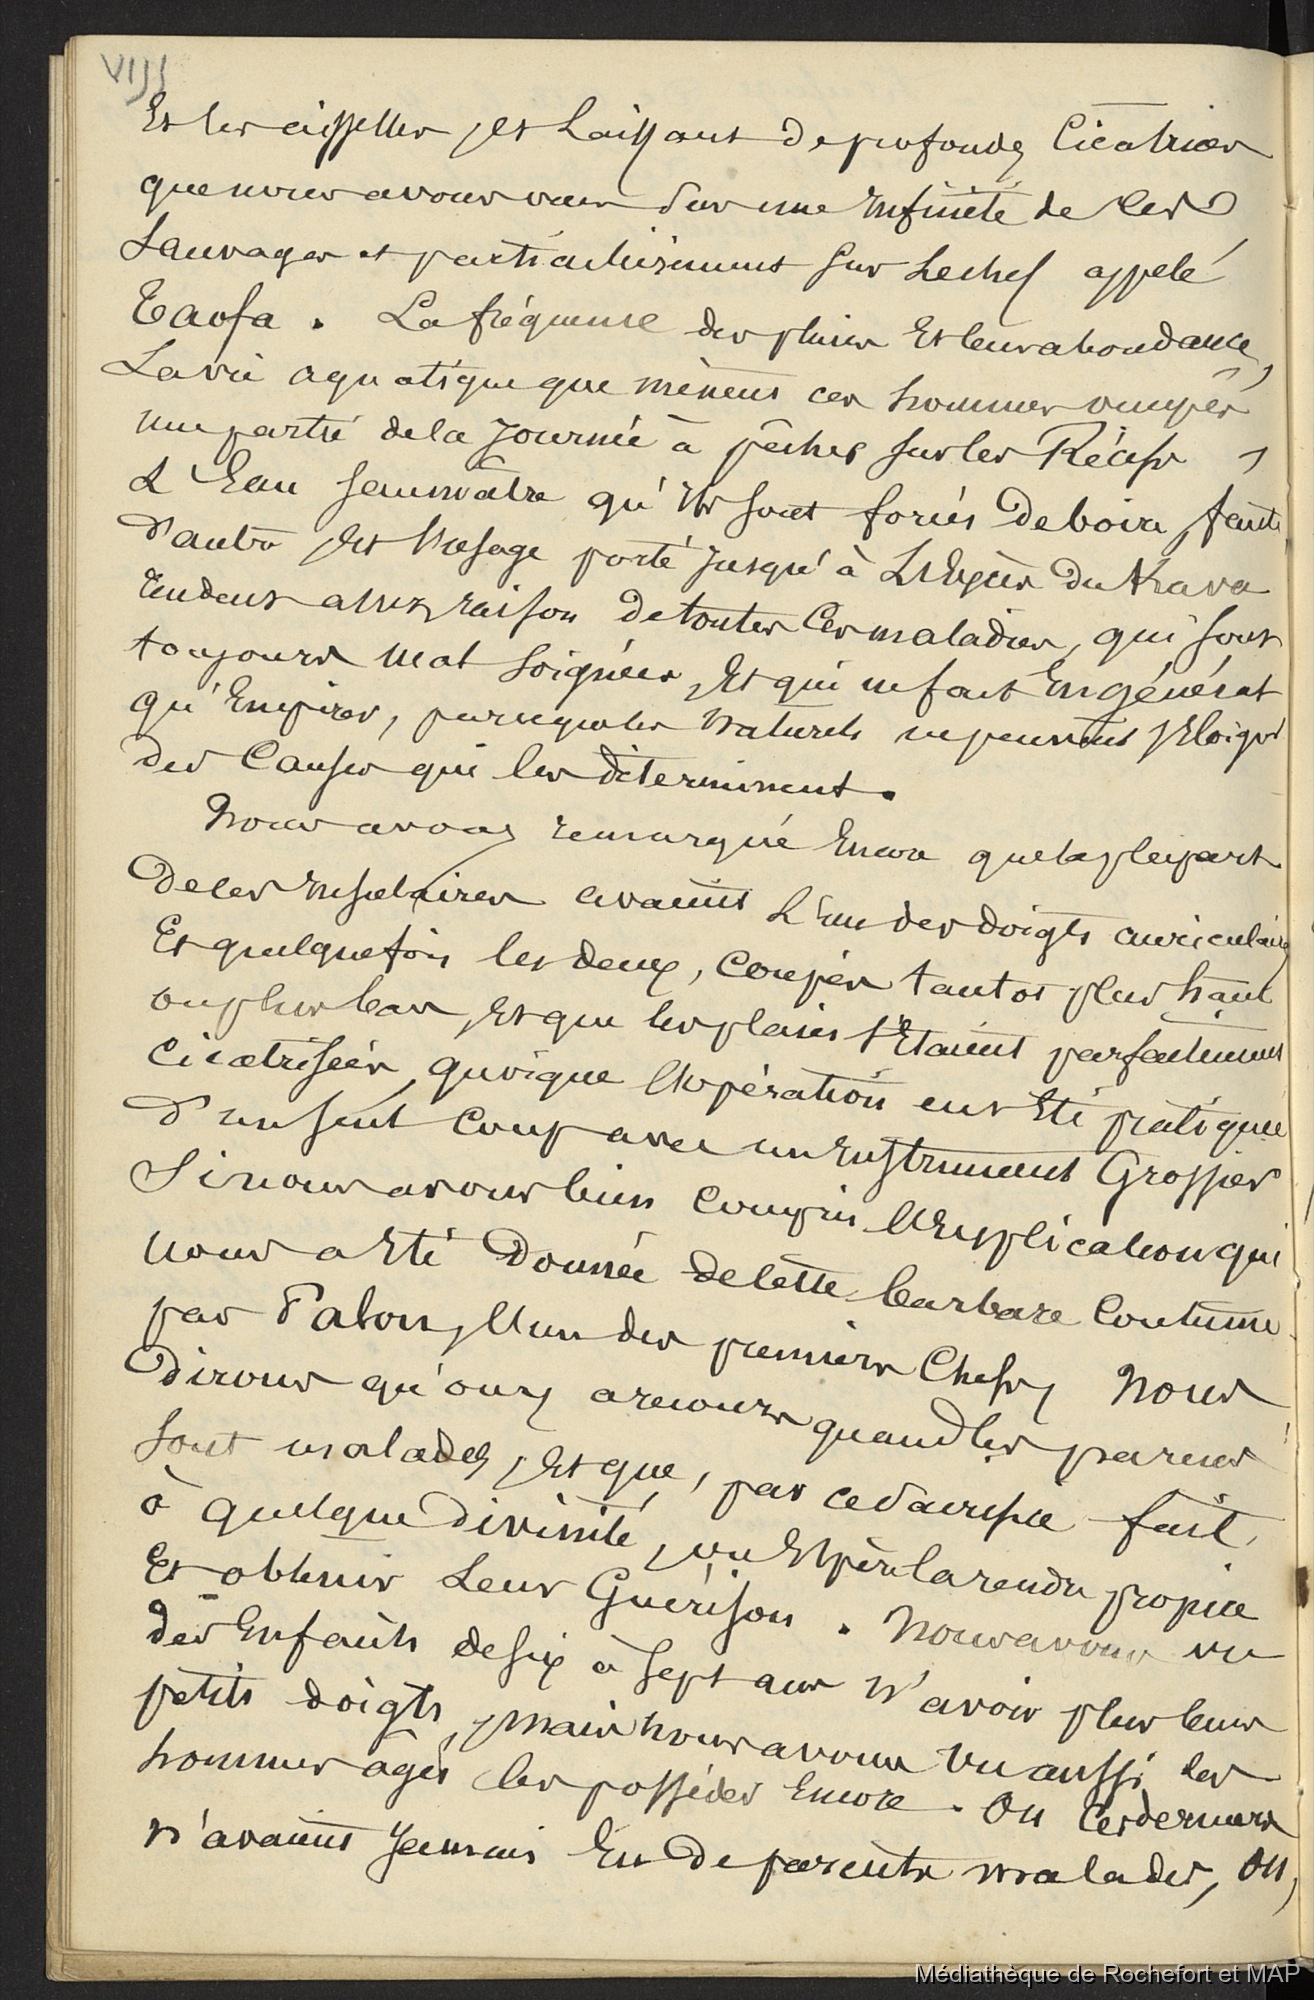 VIII
Et les aisselles, et Laissant de profondes Cicatrices
que nous avons vues Sur une Infinité de ces
Sauvages et particulièrement sur Le chef appelé
Taofa. La fréquence des pluies Et leur abondance,
La vie aquatique que mènent ces hommes occupés
une partie de la Journée à pêcher sur les Récifs,
L'Eau saumâtre qu'ils sont forcés De boire, faute
d'autre, Et l'usage porté Jusqu'à L'Excès Du Kava
Rendent assez raison De toutes Ces maladies, qui sont
toujours mal Soignées, Et qui ne font En général
qu'Empirer, parceque les Naturels ne peuvent s'Eloigner
des Causes qui les déterminent.
Nous avons remarqué Encore que la plupart
De ces Insulaires avaient L'un des doigts auriculaires
Et quelquefois les deux, Coupés tantot plus haut
ou plus bas, Et que les plaies s'Etaient parfaitement
Cicatrisées, quoique l'opération eut Eté pratiquée
d'un seul Coup avec un Instrument Grossier
Si nous avons bien Compris l'Explication qui
nous a Eté Donnée de Cette barbare Coutume
par Palou, l'un des premiers Chefs, Nous
Dirons qu'on y a recours quand les parens
sont malades, Et que, par ce sacrifice fait,
à quelque Divinité, on Espère la rendre propice
Et obtenir Leur Guérison. Nous avons vu
des Enfants de six à sept ans N'avoir plus leurs
petits doigts, mais nous avons Vu aussi des
hommes âgés les posséder Encore. Ou Ces derniers
N'avaient Jamais Eu De parents malades, Ou,
Médiathèque de Rochefort et MAP